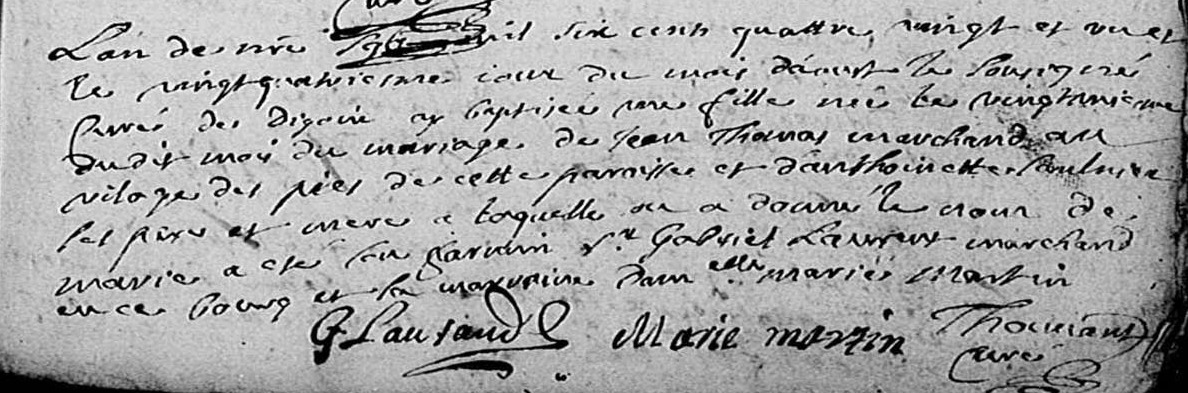 curé
L'an de nre Sgr mil six cents quattre vingt et un et
le vingtquatriesme iour du mois d'aoust Ie soussigné
Curé de ay baptisée une fille née le
dudit mois du mariage de Jean Thomas marchand au
vilage des de cette paroisse et d'anthoinette
ses pere et mere a laquelle on a donné le nom de
marie a esté son parrain Sr Gabriel Laurent marchand
en ce bourg et sa marraine Damelle marie Martin
G Laurand Marie martin
curé